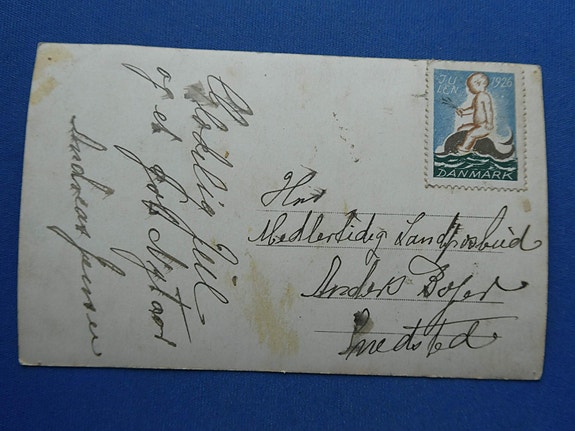 Glædelig Jul
og et godt Nytaar
Andreas Jensen
JU 1926
LEN
DANMARK
Hr
Medlertidig Landpostbud
Anders
Snedsted